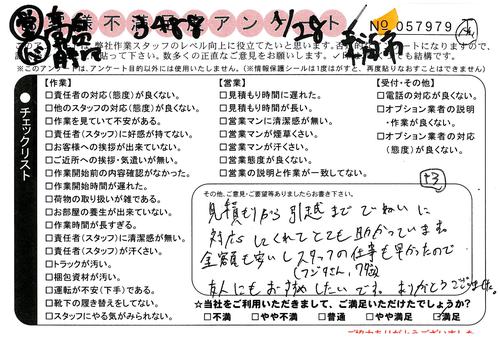 お客様不満足アンケート
No 057979
3488
1/28
平滝市
弊社作業スタッフのレベル向上に役立てたいと思います。
※このアンケートは、アンケート目的以外には使用いたしません。(※情報保護シールは1度はがすと、再度貼りなおすことはできません)
●チェックリスト
【作業】
□責任者の対応(態度)が良くない。
□他のスタッフの対応(態度)が良くない。
□作業を見ていて不安がある。
□責任者(スタッフ)に好感が持てない。
□お客様への挨拶が出来ていない。
□ご近所への挨拶・気遣いが無い。
□作業開始前の内容確認がなかった。
□作業開始時間が遅れた。
□荷物の取り扱いが雑である。
□お部屋の養生が出来ていない。
□作業時間が長すぎる。
□責任者(スタッフ)に清潔感が無い。
□責任者(スタッフ)が汗くさい。
□トラックが汚い。
□梱包資材が汚い。
□運転が不安(下手)である。
□靴下の履き替えをしてない。
□スタッフにやる気がみられない。
【営業】
□見積もり時間に遅れた。
□見積もり時間が長い。
□営業マンに清潔感が無い。
□営業マンが煙草くさい。
□営業マンが汗くさい。
□営業態度が良くない。
□営業の説明と作業が一致してない。
【受付・その他】
□電話の対応が良くない。
□オプション業者の説明
・作業が良くない。
□オプション業者の対応
(態度)が良くない。
その他、ご意見・ご要望等ありましたらお書き下さい。
見積もりから引越までていねいに
対応してくれてとても助かっています。
金額も安いしスタッフの仕事も早かったので
友人にもおすすめしたいです。ありがとうございました。
☆当社をご利用いただきまして、ご満足いただけたでしょうか?
□不満 □やや不満 □普通 □やや満足 ☑満足
ご協力ありがとうございました